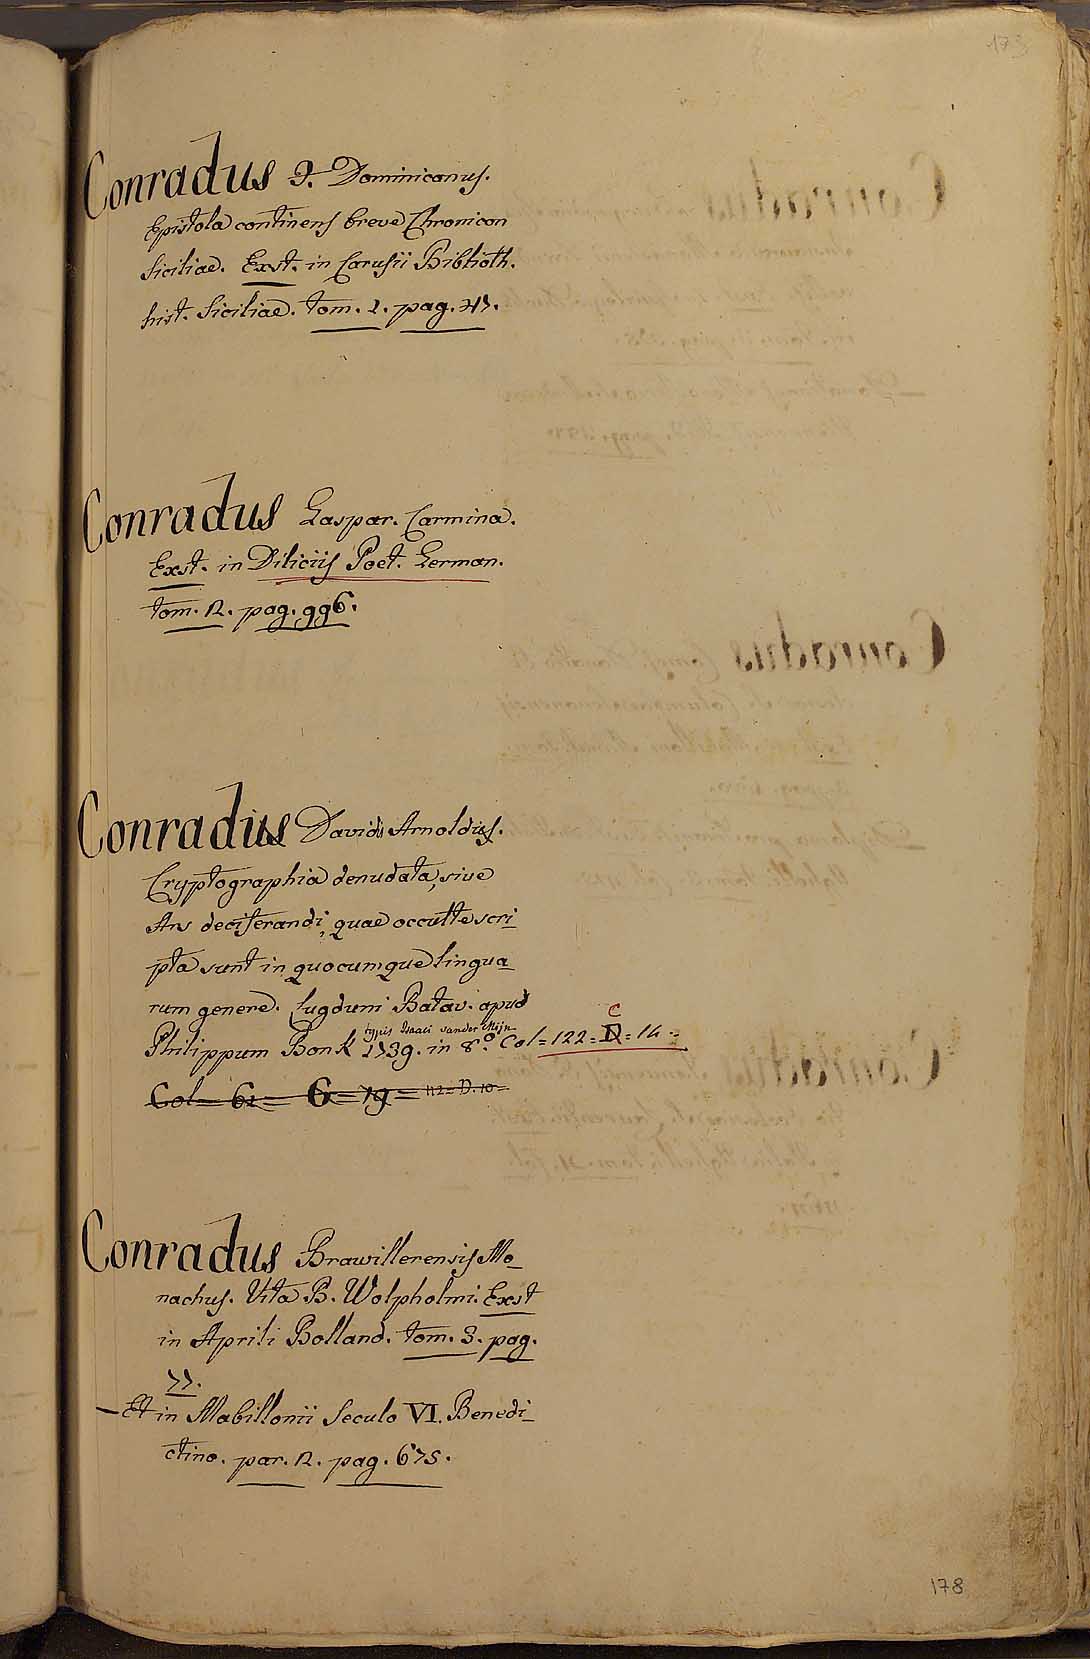 173
Conradus F. Dominicanus.
Epistola continens breve Chronicon
Siciliae. Exst. in Carusii Biblioth.
hist. Siciliae. tom. 1. pag. 47.
Conradus Gaspar. Carmina.
Exst. in Diliciis Poet. German.
tom. 2. pag. 996.
Conradus Davidis Arnoldus.
Cryptographia denudata, sive
Ars deciferandi, quae occulte scri_
pta sunt in quocumque lingua_
rum genere. Lugduni Batav. apud
typis Isaaci vander Mijn
C
Philippum Bonk 1739. in 8.º Col=122=D=14
Col= 61= 6=79= 112=D.10
Conradus Brawillerensis Mo_
nachus. Vita B. Wolpholmi. Exst
in Aprili Bolland. tom. 3. pag.
77.
_ Et in Mabillonii Seculo VI. Benedi_
ctino. par. 2. pag. 675.
178